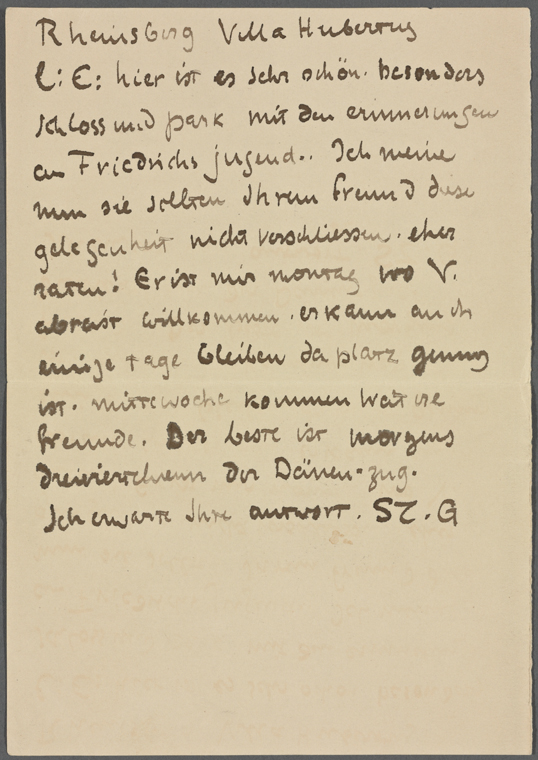 Rheinsberg Villa Hubertus
l: E: hier ist es sehr schön. besonders
schloss und park mit den erinnerungen
an Friedrichs jugend.. Ich meine
nun sie sollten Ihrem freund diese
gelegenheit nicht verschliessen. eher
raten! Er ist mir montag wo V.
abreist willkommen. er kann auch
einige tage bleiben da platz genug
ist. mittewoche kommen weitre
freunde. Der beste ist morgens
der Dänen-zug.
Ich erwarte Ihre antwort. ST. G